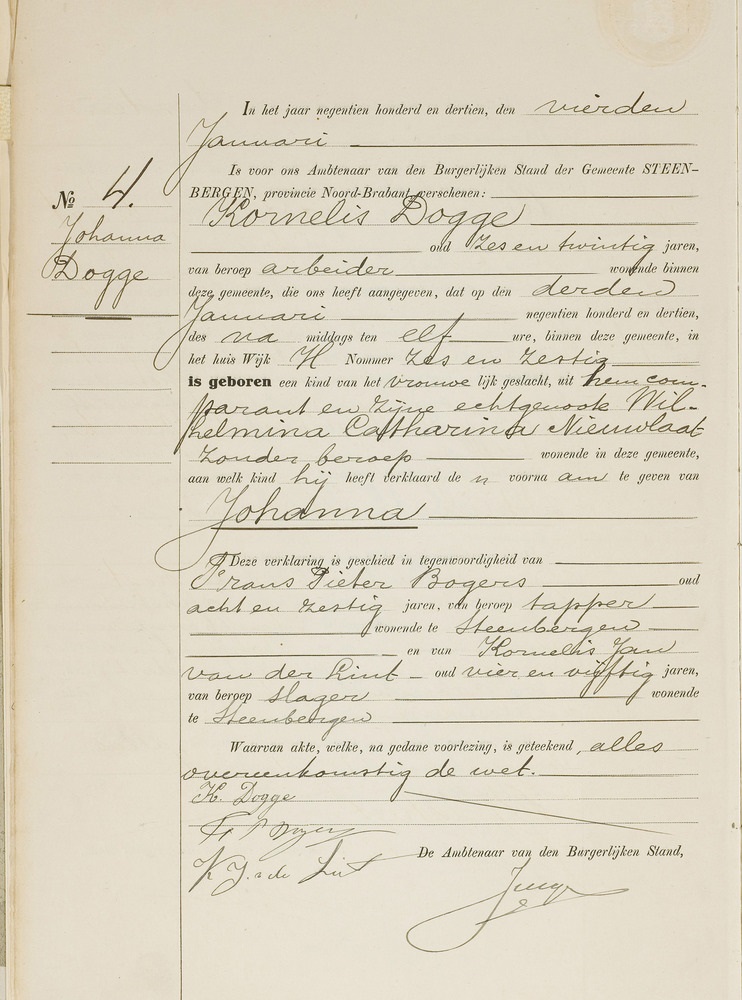 In het jaar negentien honderd en dertien, den vierden
Januari
Is voor ons Ambtenaar van den Burgerlijken Stand der Gemeente STEEN-
BERGEN, provincie Noord-Brabant, verschenen:
Kornelis Dogge
oud zes en twintig jaren,
van beroep arbeider wonende binnen
deze gemeente, die ons heeft aangegeven, dat op den derden
Januari negentien honderd en dertien,
des na middags ten elf ure, binnen deze gemeente, in
het huis Wijk H Nommer zes en zestig
is geboren een kind van het vrouwe lijk geslacht, uit hem com-
parant en zijne echtgenoote Wil-
helmina Catharina Nieuwlaat
zonder beroep wonende in deze gemeente,
aan welk kind hij heeft verklaard de n voorna am te geven van
Johanna
Deze verklaring is geschied in tegenwoordigheid van
Frans Pieter Bogers oud
acht en zestig jaren, van beroep tapper
wonende te Steenbergen
en van Kornelis Jan
van der Lint oud vier en vijftig jaren,
van beroep slager wonende
te Steenbergen
Waarvan akte, welke, na gedane voorlezing, is geteekend, alles
overeenkomstig de wet.
K. Dogge
K J v de Lint
De Ambtenaar van den Burgerlijken Stand,
No 4.
Johanna
Dogge